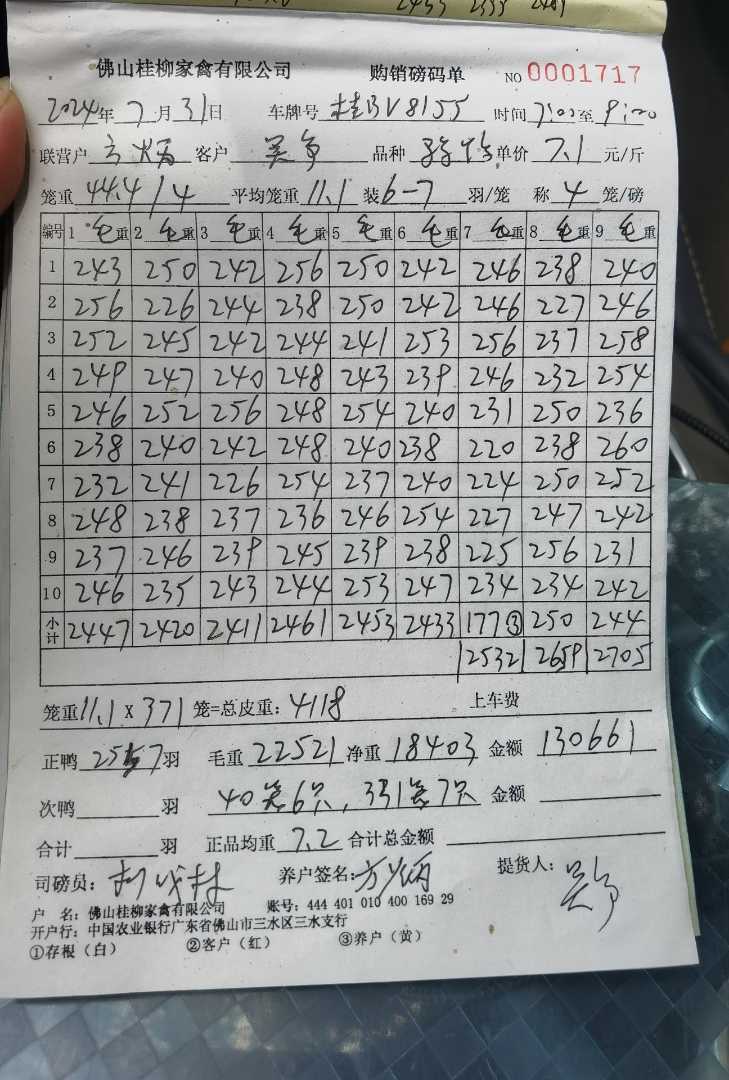 2433 2333 2481
佛山桂柳家禽有限公司 购销磅码单 NO 0001717
2024年7月31日 车牌号 桂BV8155 时间 7:00至9:00
联营户 方炳 客户 吴争 品种 单价 7.1 元/斤
笼重 44.4/4 平均笼重 11.1 装6-7 羽/笼 称 4 笼/磅
编号 1 毛重 2 毛重 3 毛重 4 毛重 5 毛重 6 毛重 7 毛重 8 毛重 9 毛重
1 243 250 242 256 250 242 246 238 240
2 256 226 244 238 250 242 246 227 246
3 252 245 242 244 241 253 256 237 258
4 249 247 240 248 243 239 246 232 254
5 246 252 256 248 254 240 231 250 236
6 238 240 242 248 240 238 220 238 260
7 232 241 226 254 237 240 224 250 252
8 248 238 237 236 246 254 227 247 242
9 237 246 239 245 239 238 225 256 231
10 246 235 243 244 253 247 234 234 242
小计 2447 2420 2411 2461 2453 2433 177③ 250 244
2532 2659 2705
笼重11.1 X 371 笼=总皮重:4118 上车费
正鸭 2557 羽 毛重 22521 净重 18403 金额 130661
次鸭 羽 40笼6只,331笼7只 金额
合计 羽 正品均重 7.2 合计总金额
司磅员: 养户签名:方炳 提货人:吴争
户 名:佛山桂柳家禽有限公司 账号:444 401 010 400 169 29
开户行:中国农业银行广东省佛山市三水区三水支行
①存根(白) ②客户(红) ③养户(黄)